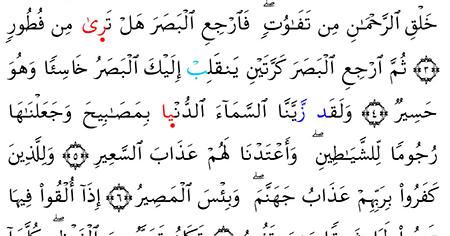 خَلْقِ الرَّحْمَـٰنِ مِن تَفَـٰوُتٖۖ فَارْجِعِ الْبَصَرَ هَلْ تَرِىٰ مِن فُطُورٖ
﴿٣﴾ ثُمَّ ارْجِعِ الْبَصَرَ كَرَّتَيْنِ يَنقَلِبْ إِلَيْكَ الْبَصَرُ خَاسِئًا وَهُوَ
حَسِيرٌ ﴿٤﴾ وَلَقَد زَّيَّنَّا السَّمَآءَ الدُّنْيِا بِمَصَـٰبِيحَ وَجَعَلْنَـٰهَا
رُجُومًا لِّلشَّيَـٰطِينِۖ وَأَعْتَدْنَا لَهُمْ عَذَابَ السَّعِيرِ ﴿٥﴾ وَلِلَّذِينَ
كَفَرُوا۟ بِرَبِّهِمْ عَذَابُ جَهَنَّمَۖ وَبِئْسَ الْمَصِيرُ ﴿٦﴾ إِذَآ أُلْقُوا۟ فِيهَا